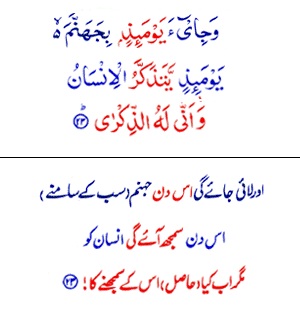 وَجِایْٓءَ یَوْمَىِٕذٍۭ بِجَهَنَّمَ ۙ۬
یَوْمَىِٕذٍ یَّتَذَكَّرُ الْاِنْسَانُ
وَاَنّٰی لَهُ الذِّكْرٰی ؕ ﴿۲۳﴾
اور لائی جائے گی اس دن جہنم (سب کے سامنے)
اس دن سمجھ آئے گی انسان کو
مگر اب کیا (حاصل) اس کے سمجھنے کا! ﴿۲۳﴾